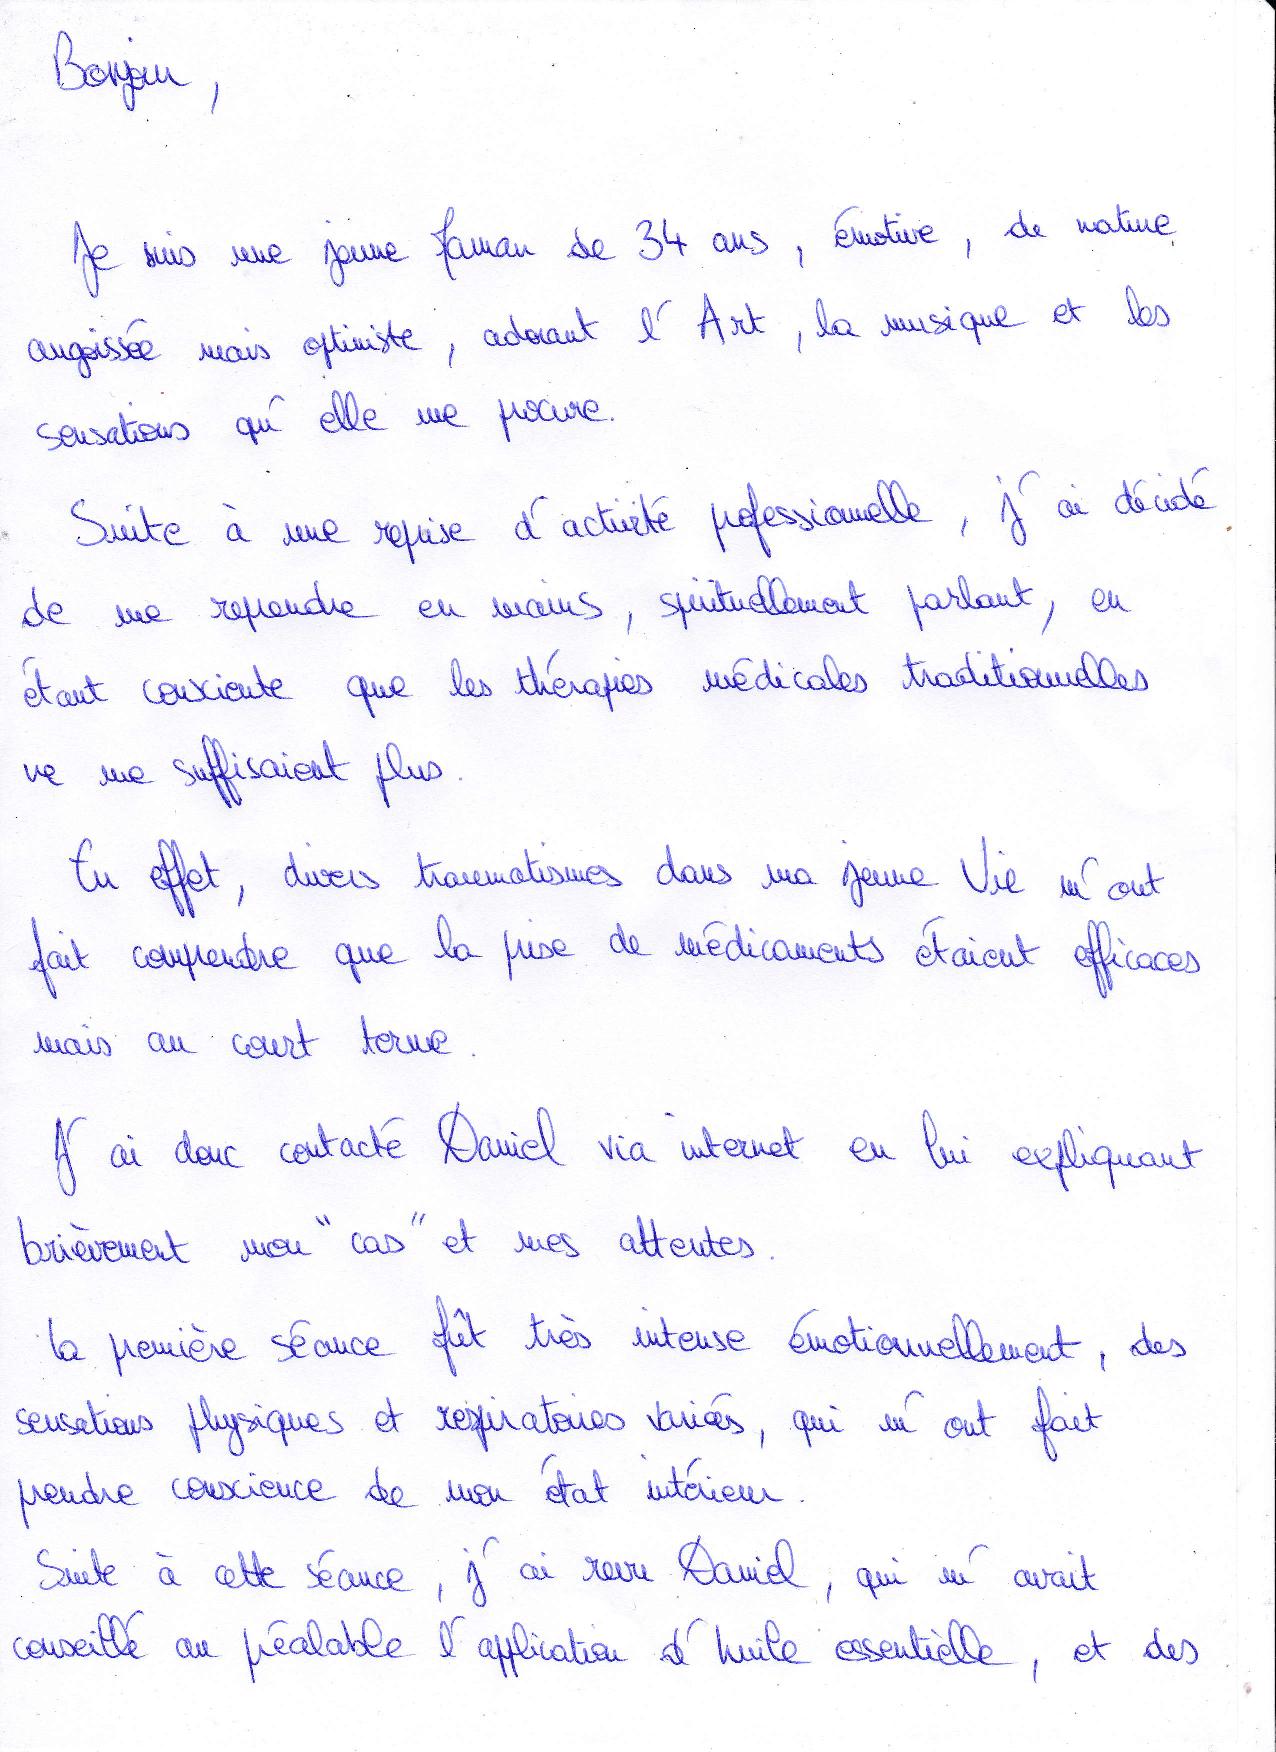 Bonjour,
Je suis une jeune Maman de 34 ans, émotive, de nature
angoissée mais optimiste, adorant l'Art, la musique et les
sensations qu'elle me procure.
Suite à une reprise d'activité professionnelle, j'ai décidé
de me reprendre en mains, spirituellement parlant, en
étant consciente que les thérapies médicales traditionnelles
ne me suffisaient plus.
En effet, divers traumatismes dans ma jeune Vie m'ont
fait comprendre que la prise de médicaments étaient efficaces
mais au court terme.
J'ai donc contacté Daniel via internet en lui expliquant
brièvement mon "cas" et mes attentes.
La première séance fût très intense émotionnellement, des
sensations physiques et respiratoires variées, qui m'ont fait
prendre conscience de mon état intérieur.
Suite à cette séance, j'ai revu Daniel, qui m'avait
conseillé au préalable l'application d'huile essentielle, et des